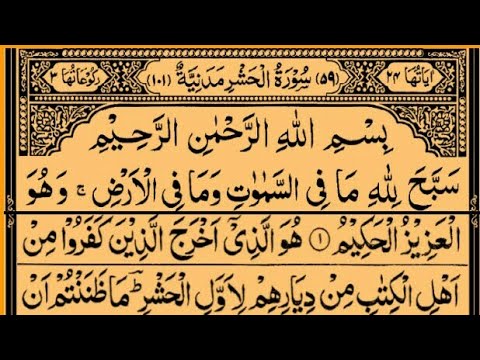 اٰیَاتُهَا ۲۴ (۵۹) سُوْرَةُ الْحَشْرِ مَدَنِیَّةٌ (۱۰۱) رُكُوْعَاتُهَا ۳
بِسْمِ اللهِ الرَّحْمٰنِ الرَّحِیْمِ
سَبَّحَ لِلّٰهِ مَا فِی السَّمٰوٰتِ وَمَا فِی الْاَرْضِ ۚ وَهُوَ
الْعَزِیْزُ الْحَكِیْمُ ۝۱ هُوَ الَّذِیْۤ اَخْرَجَ الَّذِیْنَ كَفَرُوْا مِنْ
اَهْلِ الْكِتٰبِ مِنْ دِیَارِهِمْ لِاَوَّلِ الْحَشْرِ ؔؕ مَا ظَنَنْتُمْ اَنْ